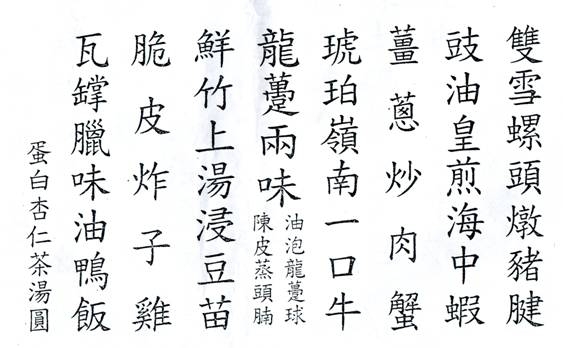 雙雪螺頭燉豬腱
豉油皇煎海中蝦
薑蔥炒肉蟹
琥珀嶺南一口牛
龍躉兩味
油泡龍躉球
陳皮蒸頭腩
鮮竹上湯浸豆苗
脆皮炸子雞
瓦罉臘味油鴨飯
蛋白杏仁茶湯圓